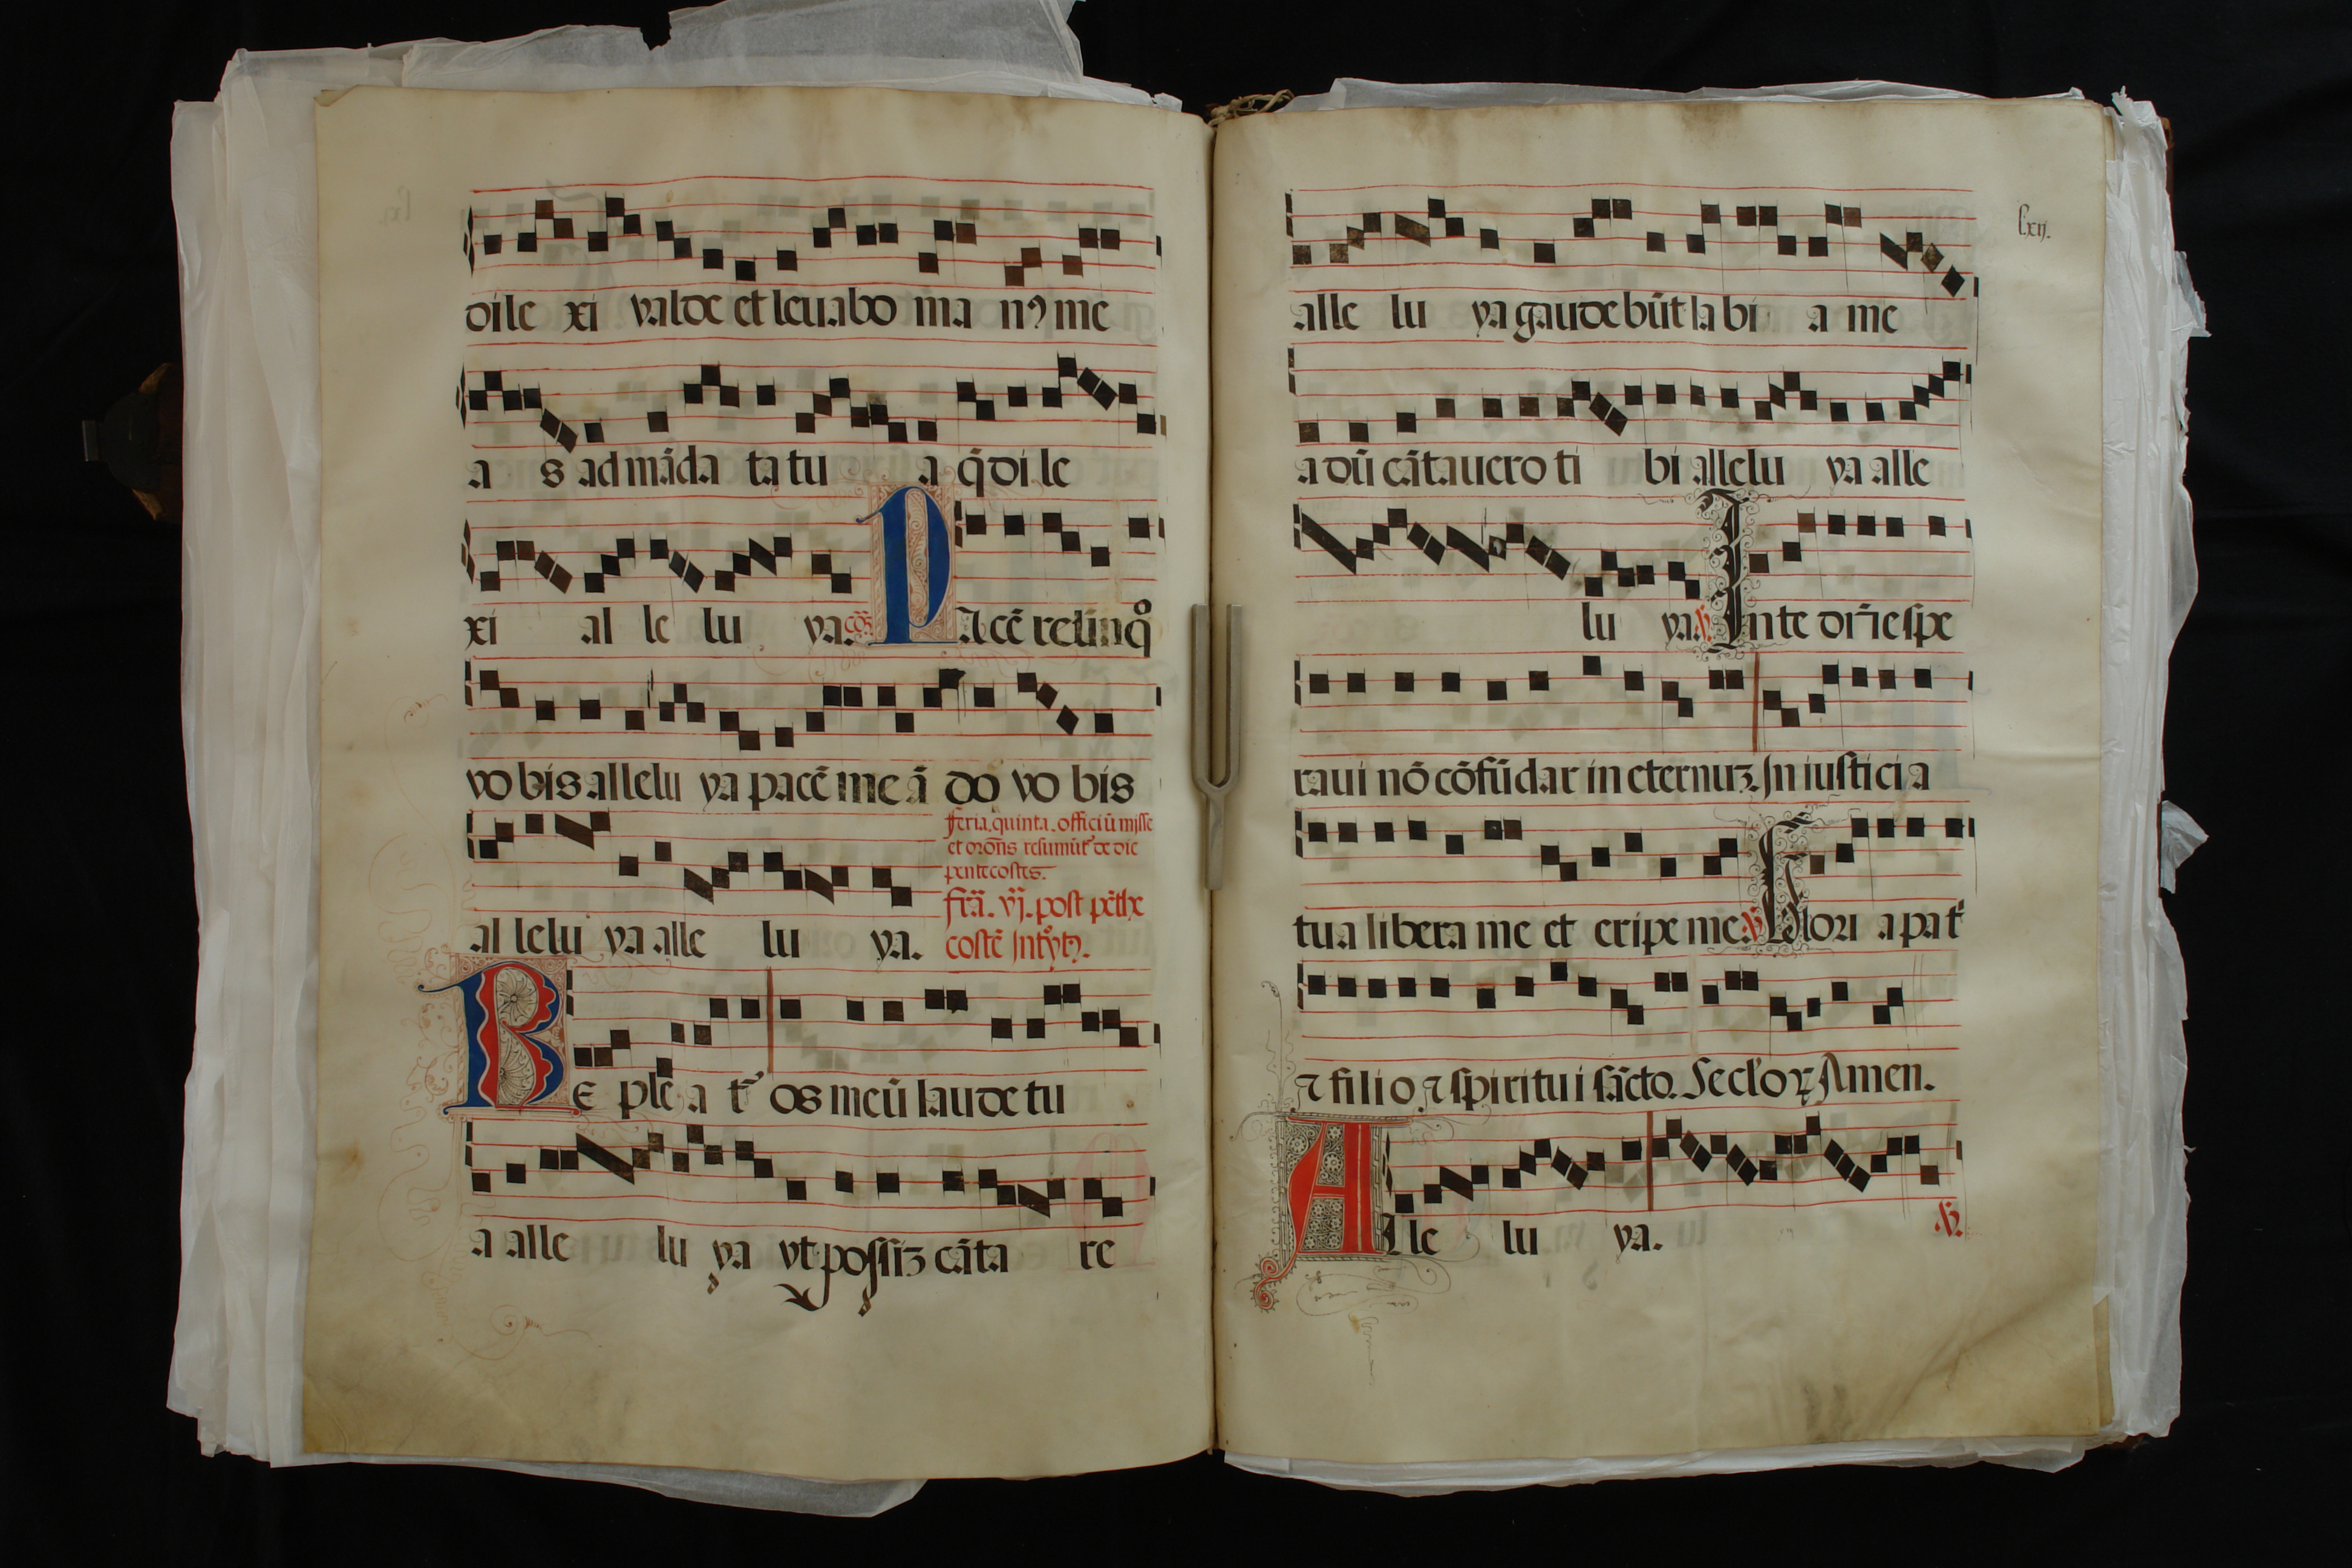 dile xi valde et leuabo ma nꝰ me
a s ad mãda ta tu a q̃ di le
xi al le lu ya. cõ. PAcẽ relinqͦ
vo bis allelu ya pacẽ me ã do vo bis
feria. quinta. officiũ misse
et orõns resumũt᷑ de die
pentecostes.
al lelu ya alle lu ya.
fr̃a. vj. post pẽthe
costẽ Jntͦytꝯ.
RE ple a t᷑ os meũ laude tu
a alle lu ya vt possiꝫ cãta re
lxij.
alle lu ya gaudebũt labi a me
a dũ cãtauero ti bi allelu ya alle
lu ya. ℣. In te dñe spe
raui nõ cõfũdar in eternuꝫ. Jn iusticia
tua libera me et eripe me. ℣. Glori a pat᷑
⁊ filio ⁊ spiritui sãcto. Seclˀoꝝ Amen.
ALle lu ya. ℣.